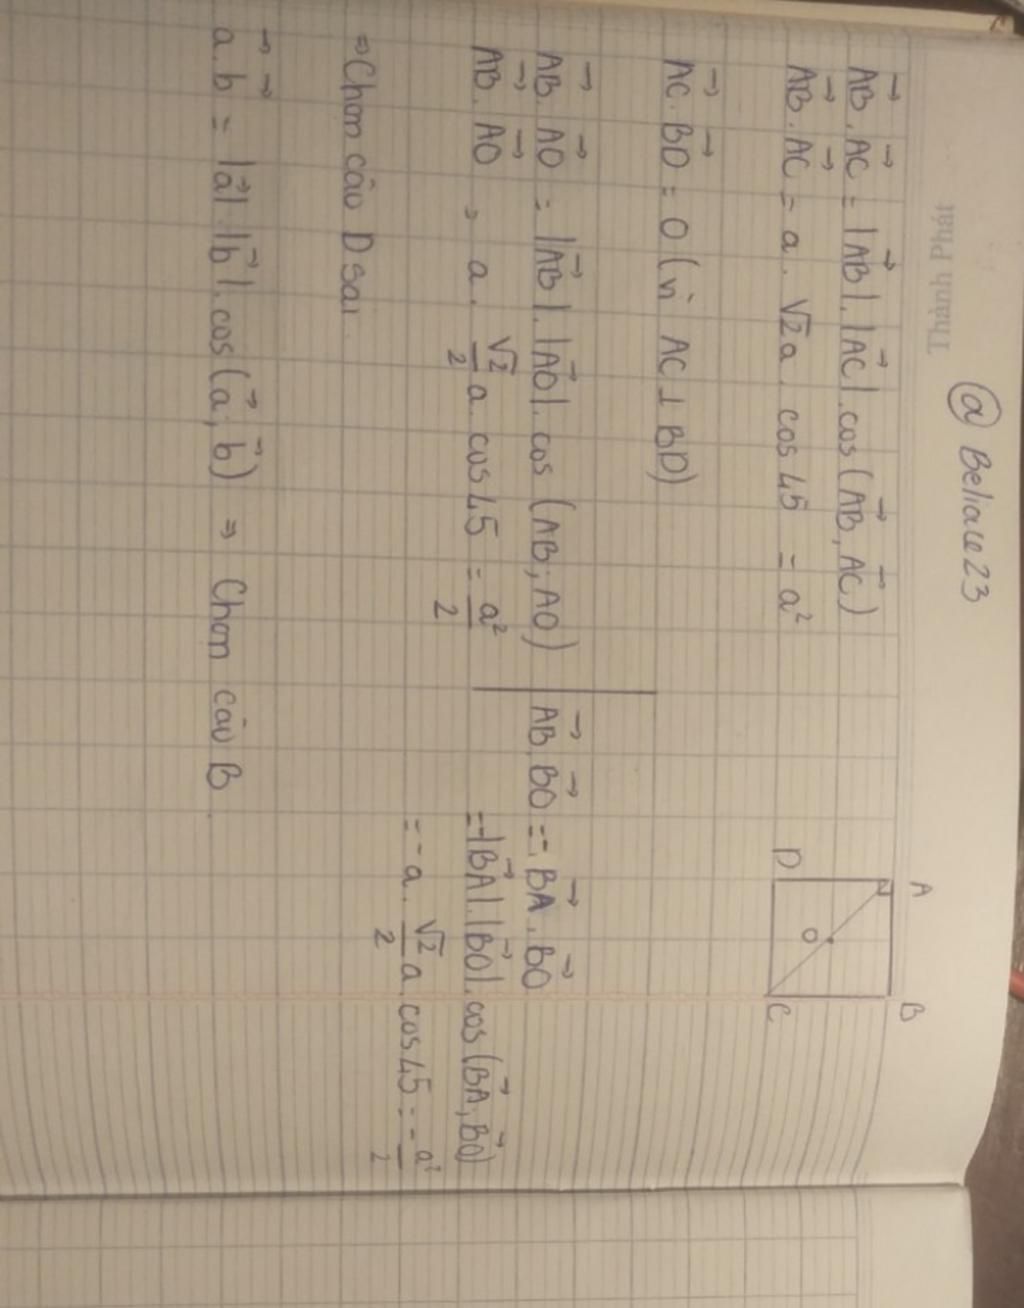 Thành Phát
@ Beliale23
AB→ . AC→ = |AB→| . |AC→| . cos (AB→, AC→)
AB→ . AC→ = a . √2a . cos 45 = a²
A B
D C
O
AC→ . BD→ = 0 (vì AC ⊥ BD)
AB→ . AO→ = |AB→| . |AO→| . cos (AB; AO)
AB→ . AO→ = a . √2/2 a . cos 45 = a²/2
AB→ . BO→ = - . BA→ . BO→
= -|BA→| . |BO→| . cos (BA→, BO→)
= - a . √2/2 a . cos 45 = - a²/2
⇒ Chọn câu D sai.
a→ . b→ = |a→| . |b→| . cos (a→; b→) ⇒ Chọn câu B